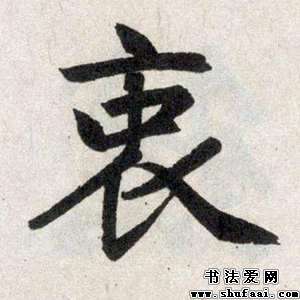 衷
书法爱网
www.shufaai.com